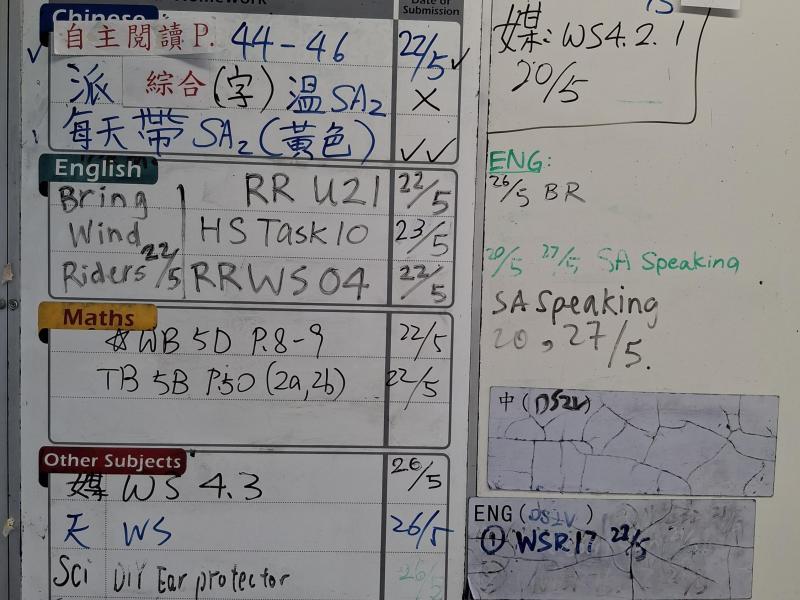 Homework
Date of Submission
Chinese
自主閱讀P. 44-46 22/5 ✓
派 綜合(字) 溫SA2 ×
每天帶SA2(黃色) ✓✓
English
Bring RR U21 22/5
Wind HS Task10 23/5
Riders 22/5 RRWS04 22/5
Maths
☆WB 5D P.8-9 22/5
TB 5B P.50 (2a,2b) 22/5
Other Subjects
媒 WS 4.3 26/5
天 WS 26/5
Sci DIY Ear protector 26/5
15
媒:WS4.2.1
20/5
ENG:
26/5 BR
20/5 27/5 SA Speaking
SA Speaking
20,27/5.
中(DS2V)
ENG(DS2V)
① WSR17 22/5